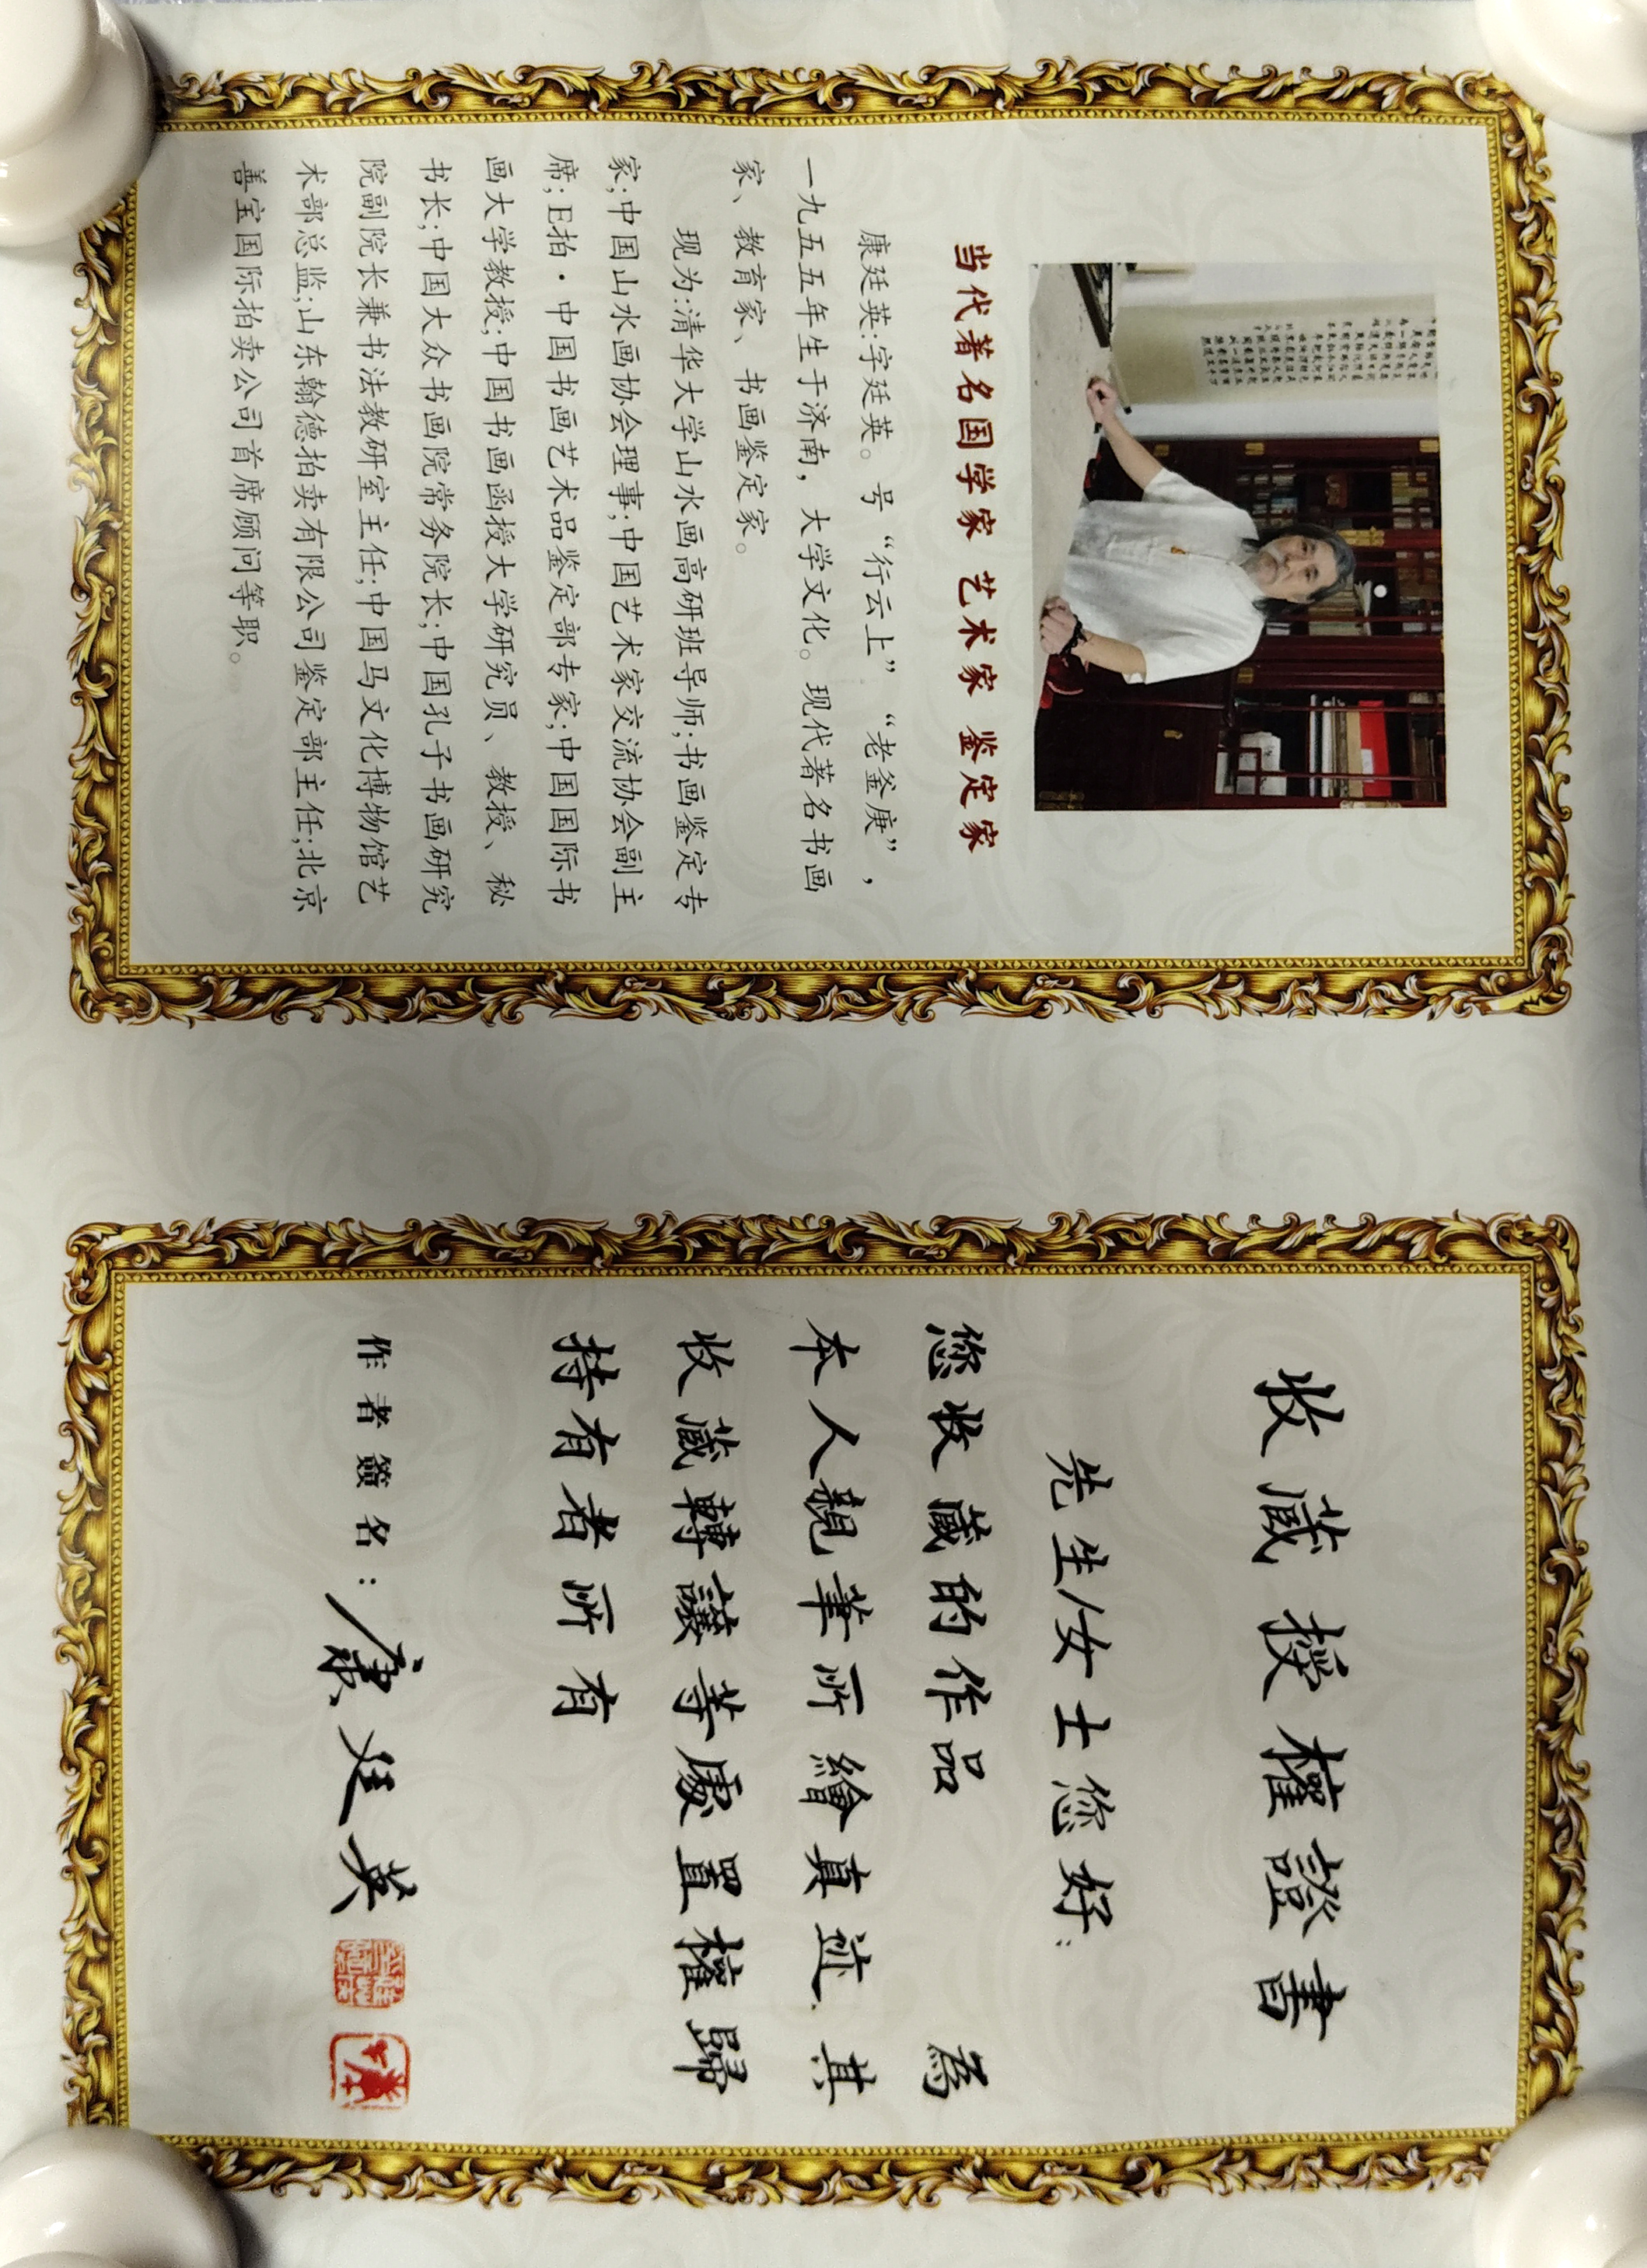 当代著名国学家 艺术家 鉴定家
康廷英:字廷英。号“行云上”“老釜庚”，
一九五五年生于济南，大学文化。现代著名书画
家、教育家、书画鉴定家。
现为:清华大学山水画高研班导师;书画鉴定专
家;中国山水画协会理事;中国艺术家交流协会副主
席;E拍·中国书画艺术品鉴定部专家;中国国际书
画大学教授;中国书画函授大学研究员、教授、秘
书长;中国大众书画院常务院长;中国孔子书画研究
院副院长兼书法教研室主任;中国马文化博物馆艺
术部总监;山东翰德拍卖有限公司鉴定部主任;北京
善宝国际拍卖公司首席顾问等职。
收藏授權證書
先生/女士您好:
您收藏的作品 為
本人親筆所繪真迹.其
收藏轉讓等處置權歸
持有者所有
作者簽名:康廷英